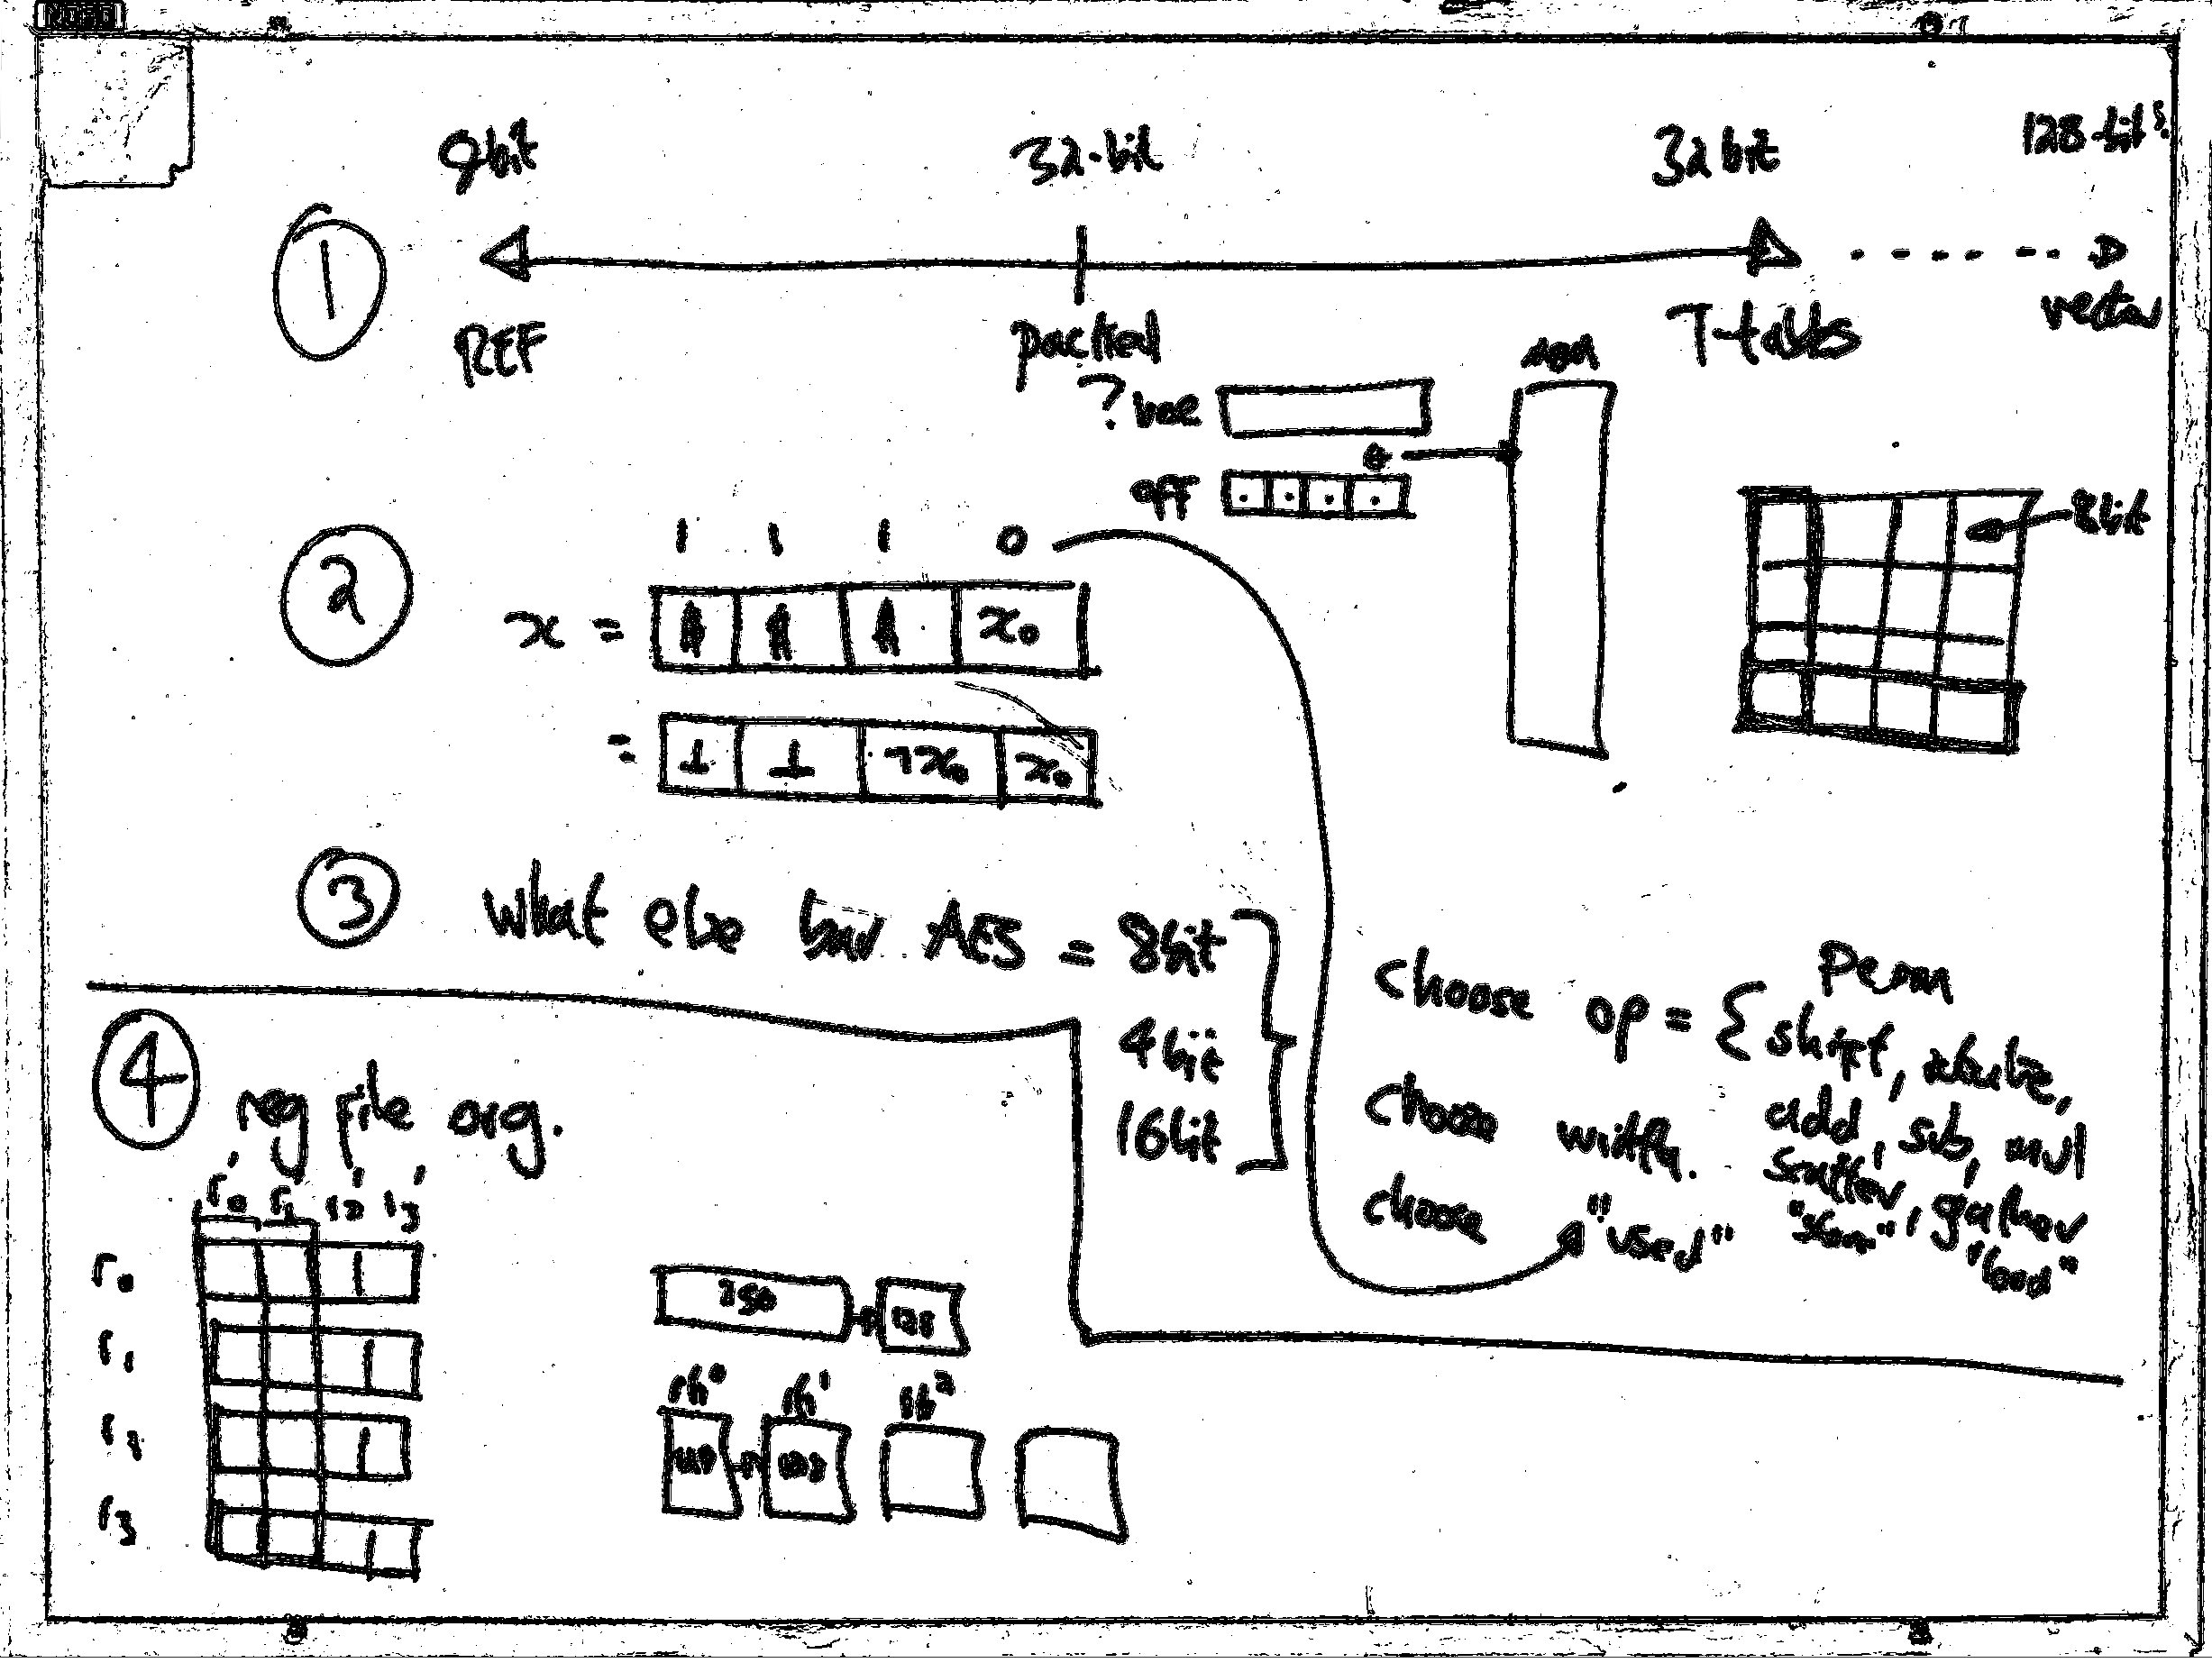 8bit 32-bit 32 bit 128-bit?
1
REF packed T-tables vector
? base mem
off
8bit
2
1 1 1 0
x = x₀
= ⊥ ⊥ ¬x₀ x₀
3 What else bar AES = 8bit
4bit
16bit
choose op = { perm
shift, rotate,
add, sub, mul
scatter, gather
"store", "load"
choose width.
choose "used"
4 reg file org.
r₀' r₁' r₂' r₃'
r₀
r₁
r₂
r₃